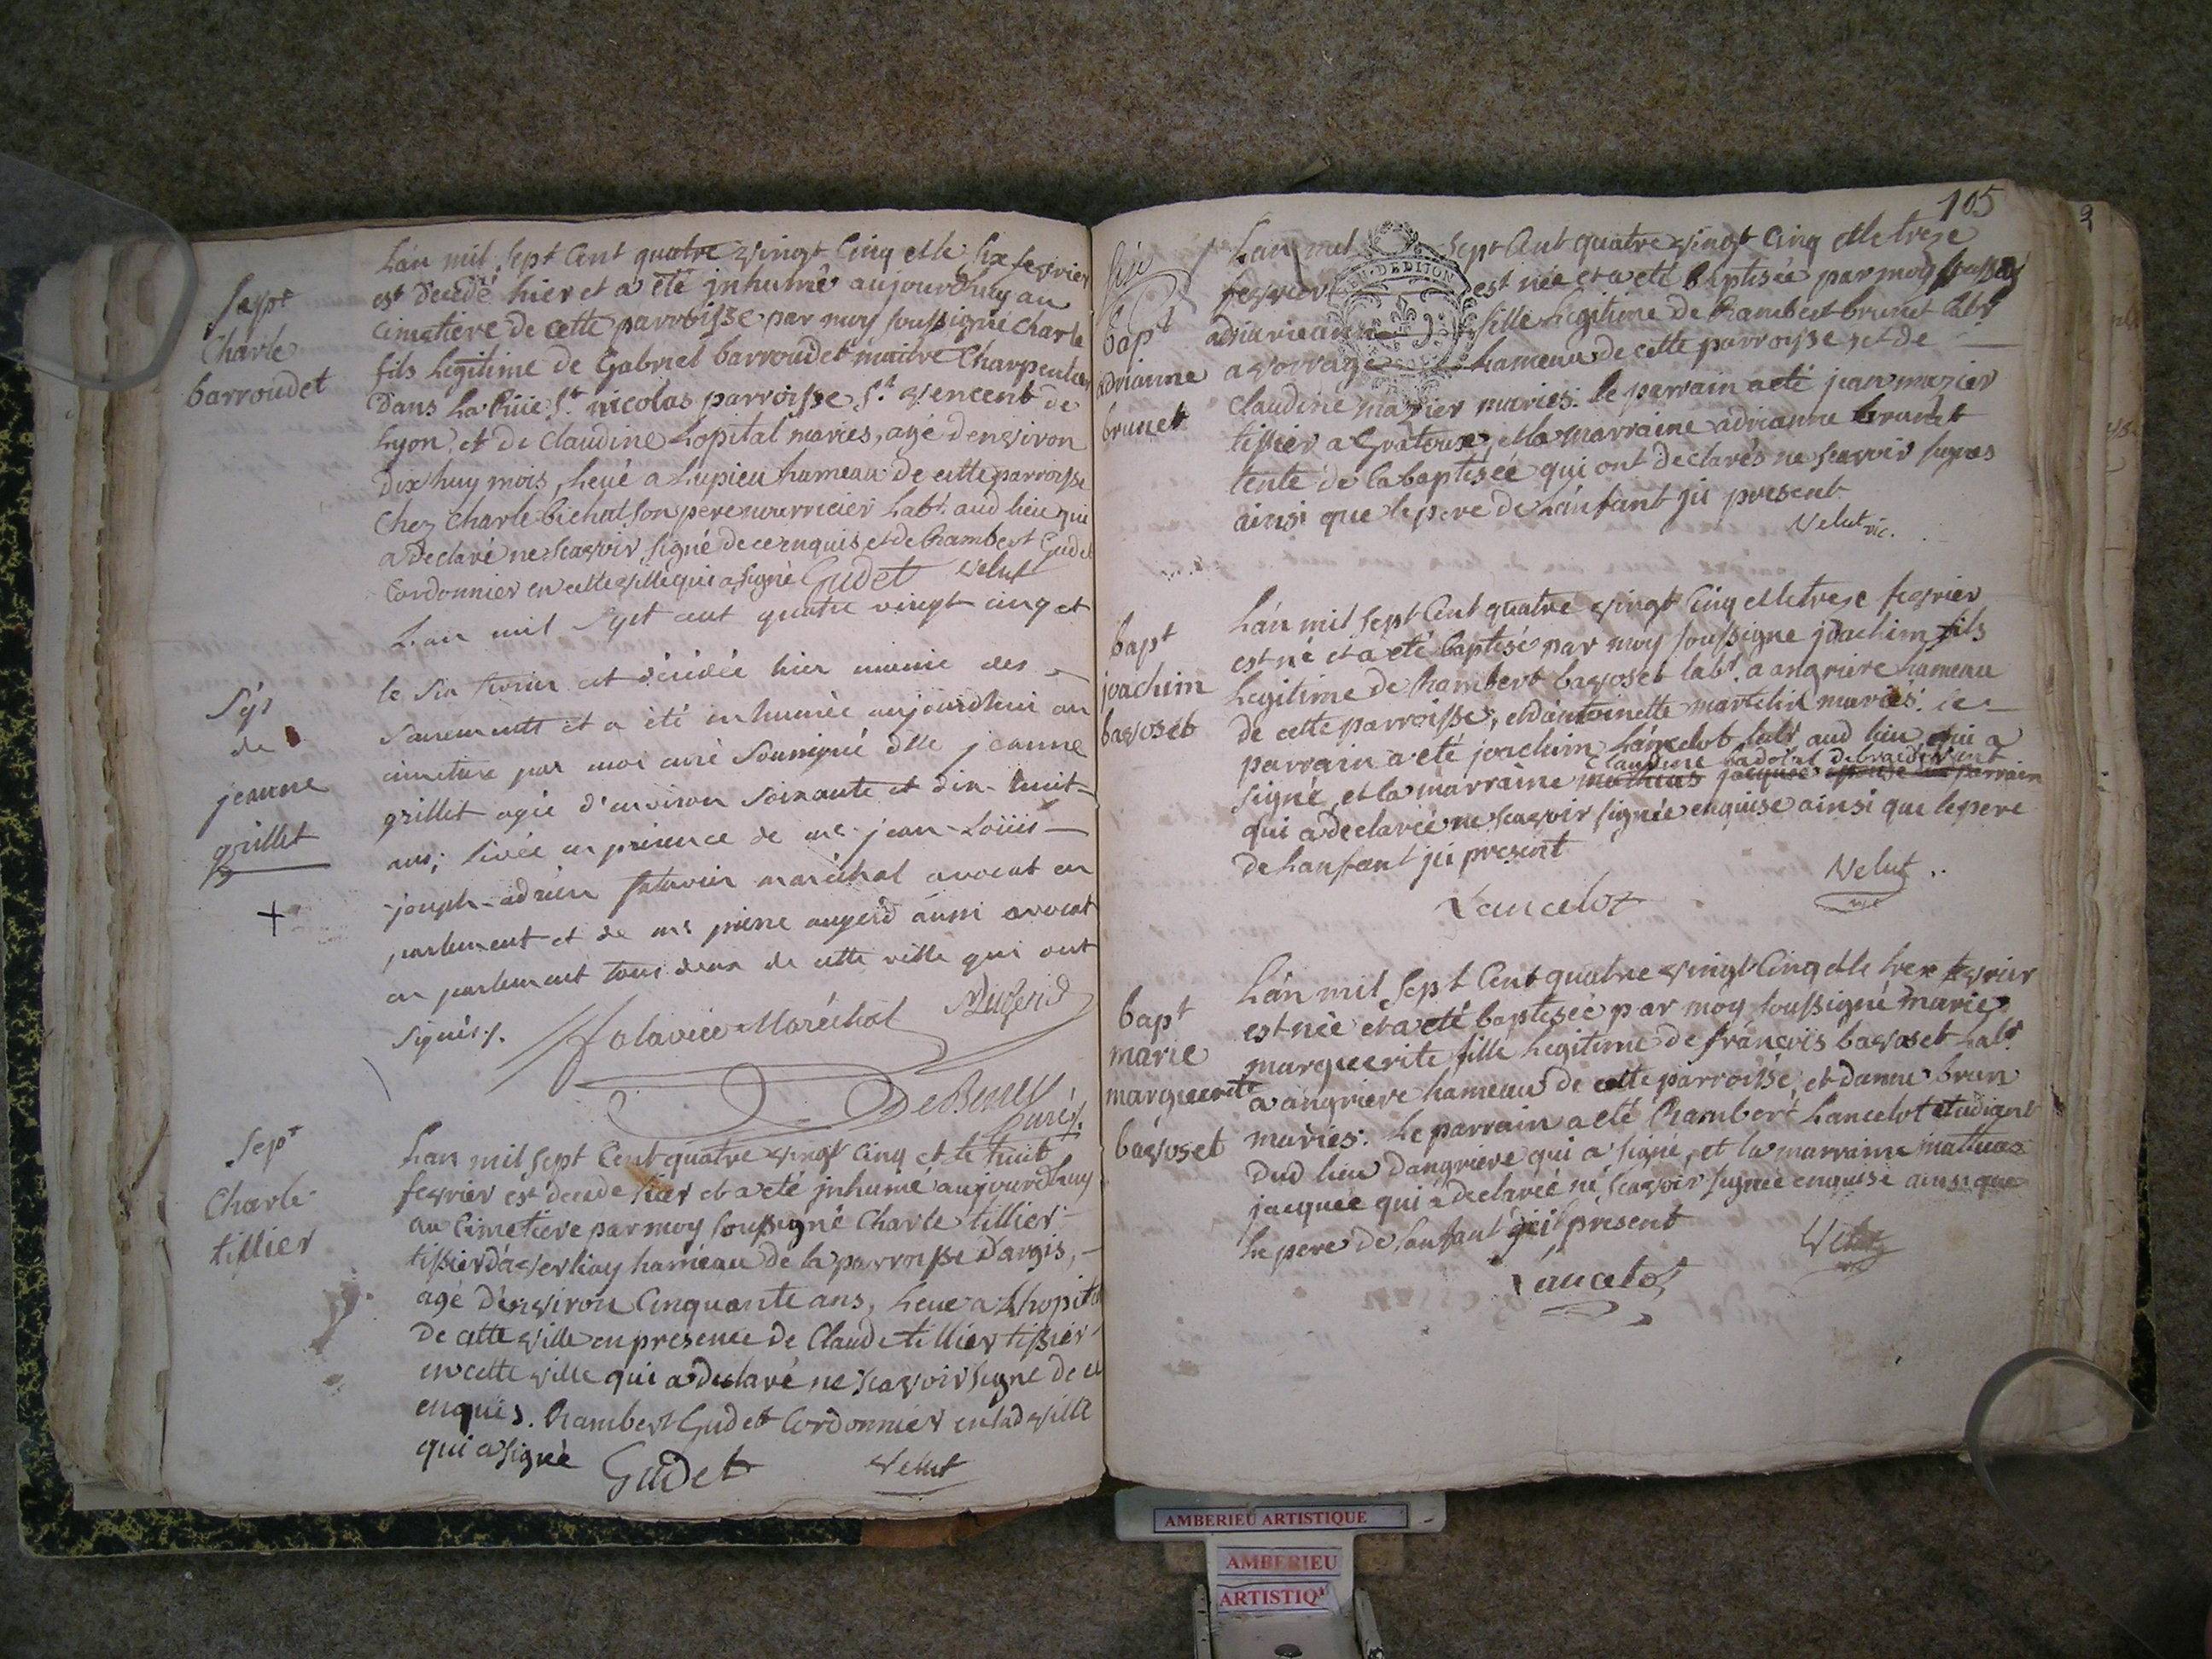 Sept
Charle
barroudet
Lan mil sept Cent quatre vingt Cinq et le six fevrier
est decedé hier et a été inhumé aujourdhuy au
Cimetiere de cette parroisse par moy soussigné Charle
fils Legitime de Gabriel barroudet maitre Charpentier
dans La Rüe St nicolas parroisse St vencent de
Lyon, et de Claudine Lopital mariés, agé denviron
dix huy mois, Levé a Lupieu hameau de cette parroisse
Chez Charle bichat son pere nourricier Labr aud lieu qui
a declaré ne scavoir signé de ce enquis, et de Rambert Gudet
Cordonnier en cette ville qui a signé Gudet Velut
Sép
de
jeanne
grillet
+
L'an mil sept cent quatre vingt cinq et
le six fevrier est décédée hier munie des
sacrements et a été inhumée aujourdhui au
cimetiere par moi curé soussigné dlle jeanne
grillet agée d'environ soixante et dix-huit
ans; levée en présence de me jean-Loüis
joseph-adrien maréchal avocat en
parlement et de me pierre augerd aussi avocat
en parlement tous deux de cette ville qui ont
signés.
Maréchal Augerd
Curé
Sept
Charle
tillier
Lan mil sept Cent quatre vingt Cinq et le huit
fevrier est decede hier et a eté inhumé aujourdhuy
au Cimetiere par moy soussigné Charle tillier
tissier hameau de la parroisse d'argis,
agé d'environ Cinquante ans, Leve a Lhopital
de cette ville en presence de Claude tillier tissier
en cette ville qui a declaré ne scavoir signe de ce
enquis. Rambert Gudet Cordonnier en lad ville
qui a signé Gudet Velut
105
2
bapt
adrianne
brunet
Lan mil sept Cent quatre vingt Cinq et le treze
fevrier est née et a eté baptisée par moy
fille Legitime de Rambert brunet labr
hameau de cette parroisse, et de
Claudine mazier mariés. le parrain a eté jean mazier
tissier a Gratoux, et la marraine adrianne brunet
tente de la baptisée qui ont declarés ne scavoir signes
ainsi que le pere de Lanfant ici present
Velut vic.
bapt
joachim
bavoset
Lán mil sept Cent quatre vingt Cinq et le treze fevrier
est né et a été baptisé par moy soussigne joachim fils
Legitime de Rambert bavoset labr. a angriere hameau
de cette parroisse, et dántoinette martelin mariés. le
parrain a eté joachim Láncelot labr aud lieu qui a
Claudine
signé, et la marraine jacquee parrain
qui a declarée ne scavoir signée enquise ainsi que le pere
de Lanfant ici present
Lancelot Velut
bapt
marie
marguerite
bavoset
Lán mil sept Cent quatre vingt Cinq et le treze fevrier
est née et a eté baptisée par moy soussigné marie
marguerite fille Legitime de fráncois bavoset Labr
a angriere hameau de cette parroisse, et danne brun
mariés. Le parrain a eté Rambert Lancelot etudiant
dud lieu dangriere qui a signé, et la marraine
jacquee qui a declareé ne scavoir signeé enquise ainsi que
Le pere de Lanfant ici present
Lancelot Velut
AMBERIEU ARTISTIQUE
AMBERIEU
ARTISTIQ